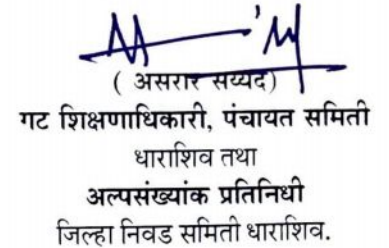 ( असरार सय्यद)
गट शिक्षणाधिकारी, पंचायत समिती
धाराशिव तथा
अल्पसंख्यांक प्रतिनिधी
जिल्हा निवड समिती धाराशिव.